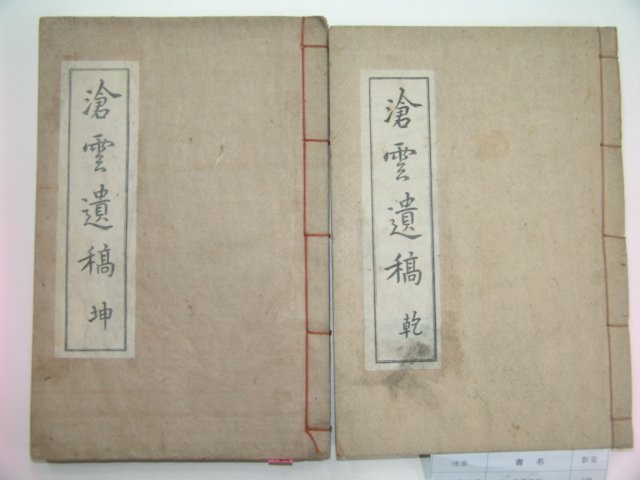 滄雲遺稿 乾
滄雲遺稿 坤
書名
數量